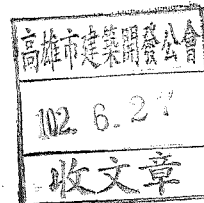 高雄市建築開發公會
102. 6. 2
收文章